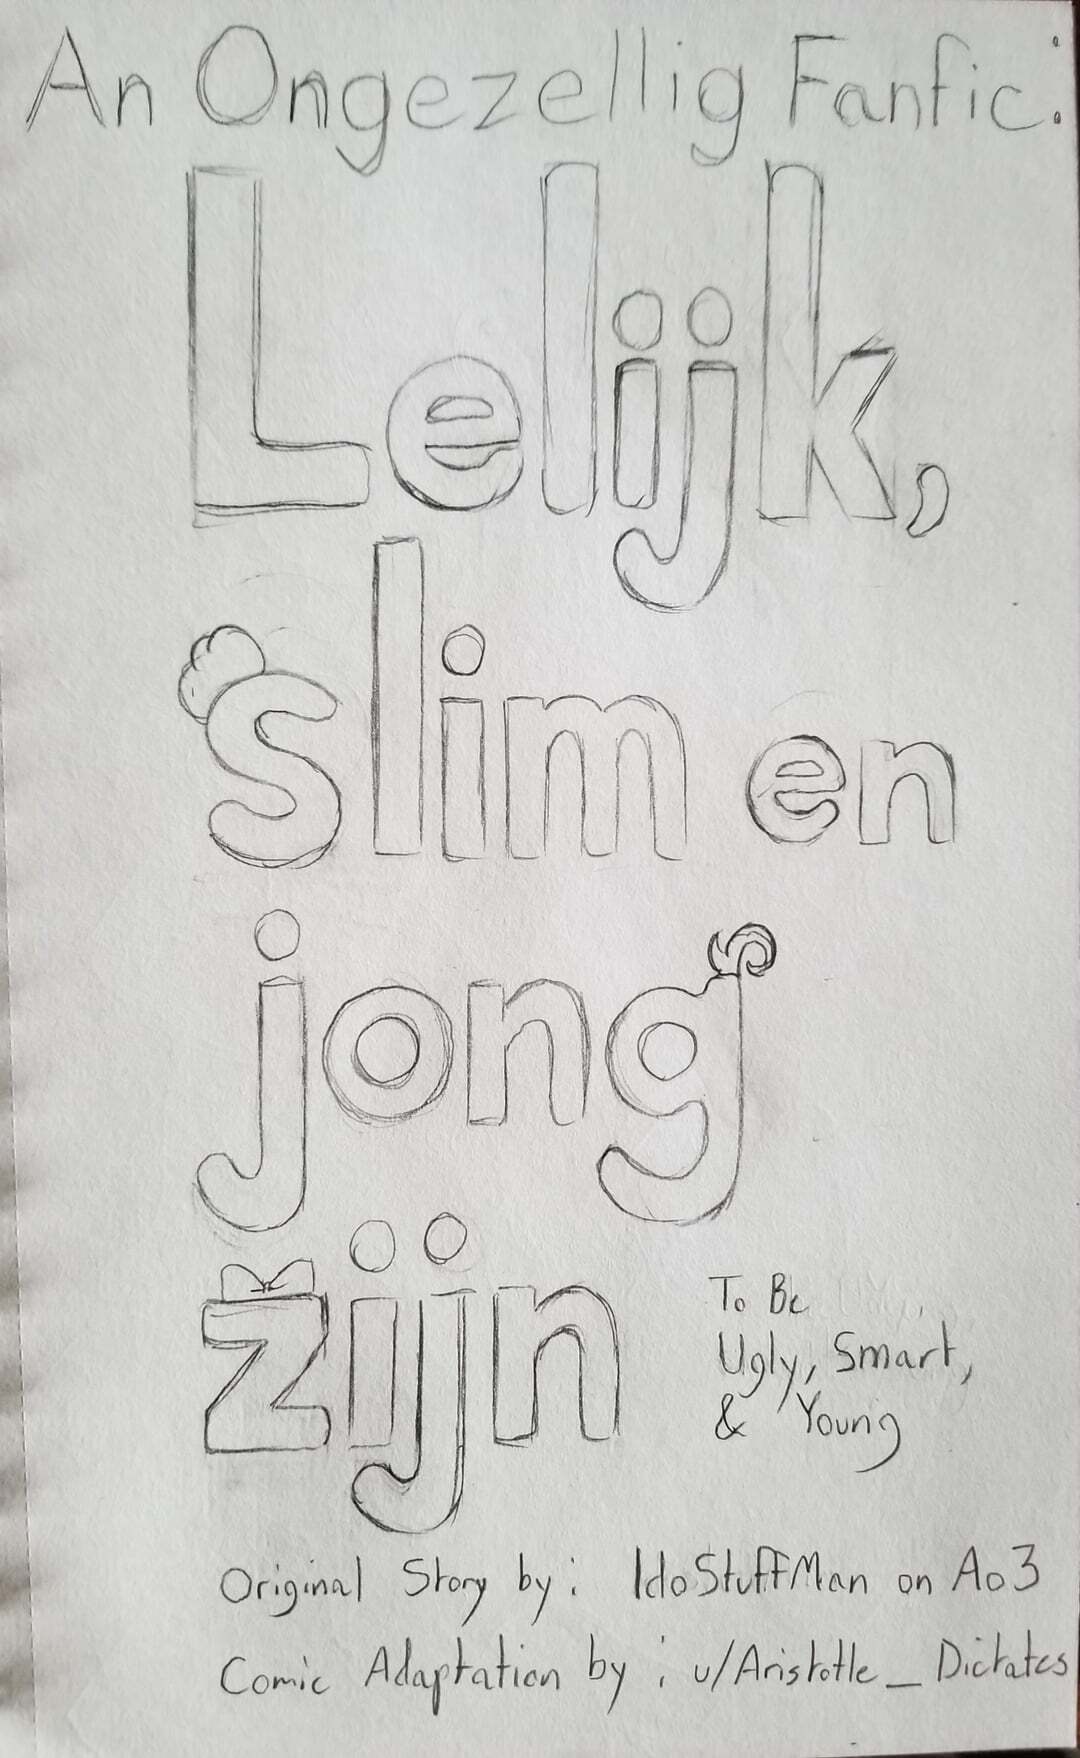 An Ongezellig Fanfic:
Lelijk,
slim en
jong
zijn
To Be
Ugly, Smart,
& Young
Original Story by: IdoStuffMan on Ao3
Comic Adaptation by: u/Aristotle_Dictates